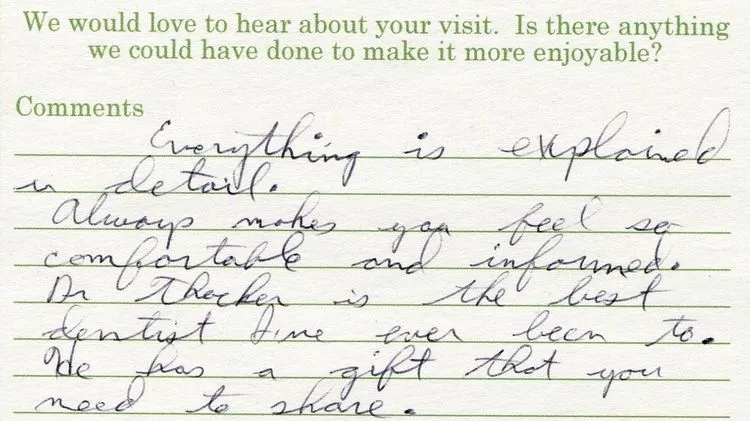 We would love to hear about your visit. Is there anything
we could have done to make it more enjoyable?
Comments
Everything is explained
in detail.
Always makes you feel so
comfortable and informed.
Dr Thacker is the best
dentist I've ever been to.
He has a gift that you
need to share.